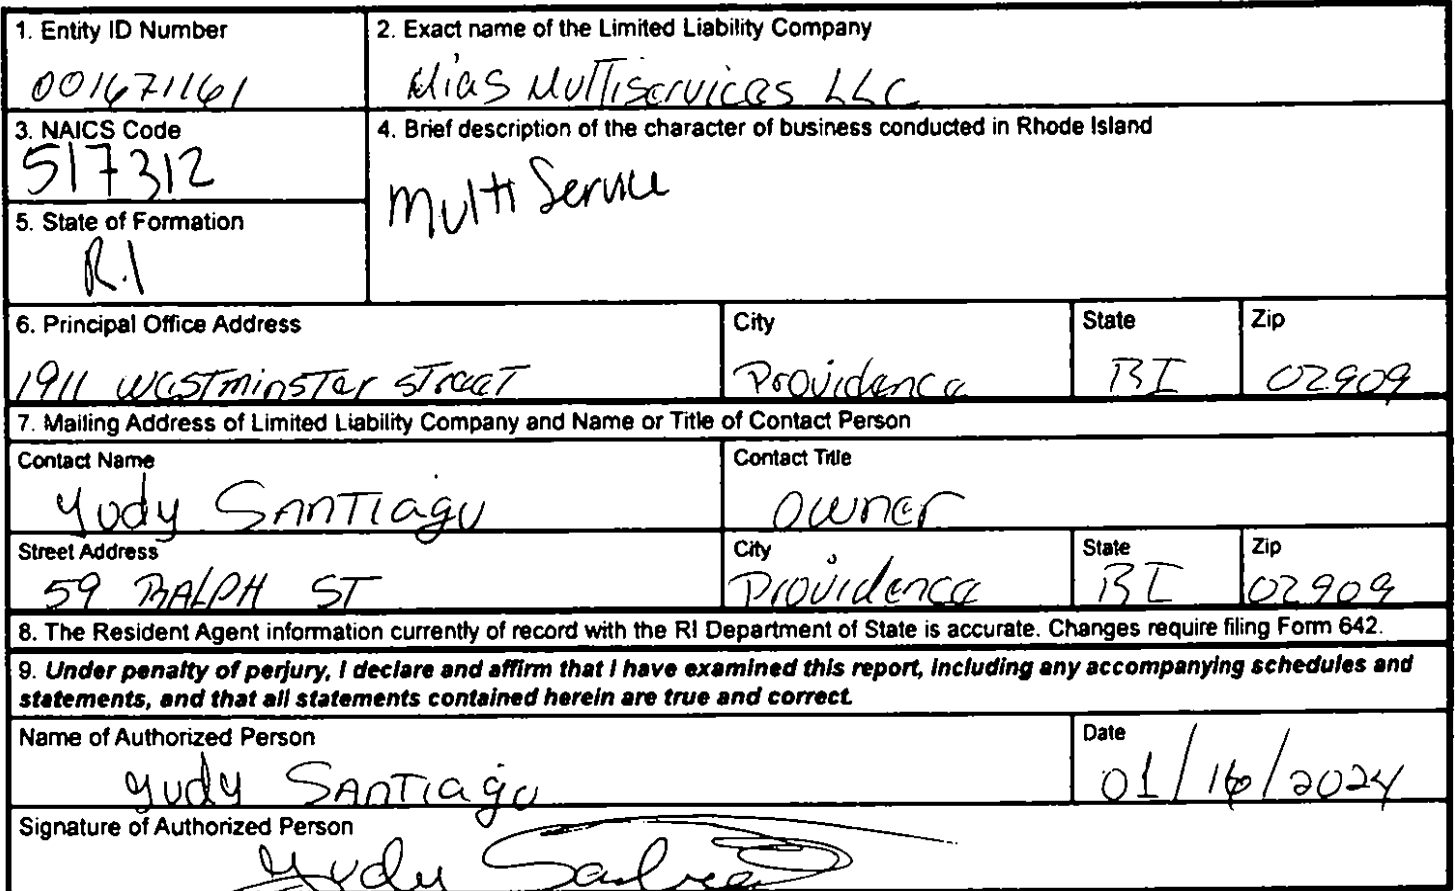 1. Entity ID Number
001671161
2. Exact name of the Limited Liability Company
Mias Multiservices LLC
3. NAICS Code
517312
4. Brief description of the character of business conducted in Rhode Island
Multi Service
5. State of Formation
R.I
6. Principal Office Address City State Zip
1911 Westminster Street Providence RI 02909
7. Mailing Address of Limited Liability Company and Name or Title of Contact Person
Contact Name Contact Title
Yudy Santiago owner
Street Address City State Zip
59 RALPH ST Providence RI 02909
8. The Resident Agent information currently of record with the RI Department of State is accurate. Changes require filing Form 642.
9. Under penalty of perjury, I declare and affirm that I have examined this report, including any accompanying schedules and
statements, and that all statements contained herein are true and correct.
Name of Authorized Person Date
Yudy Santiago 01/16/2024
Signature of Authorized Person
Yudy